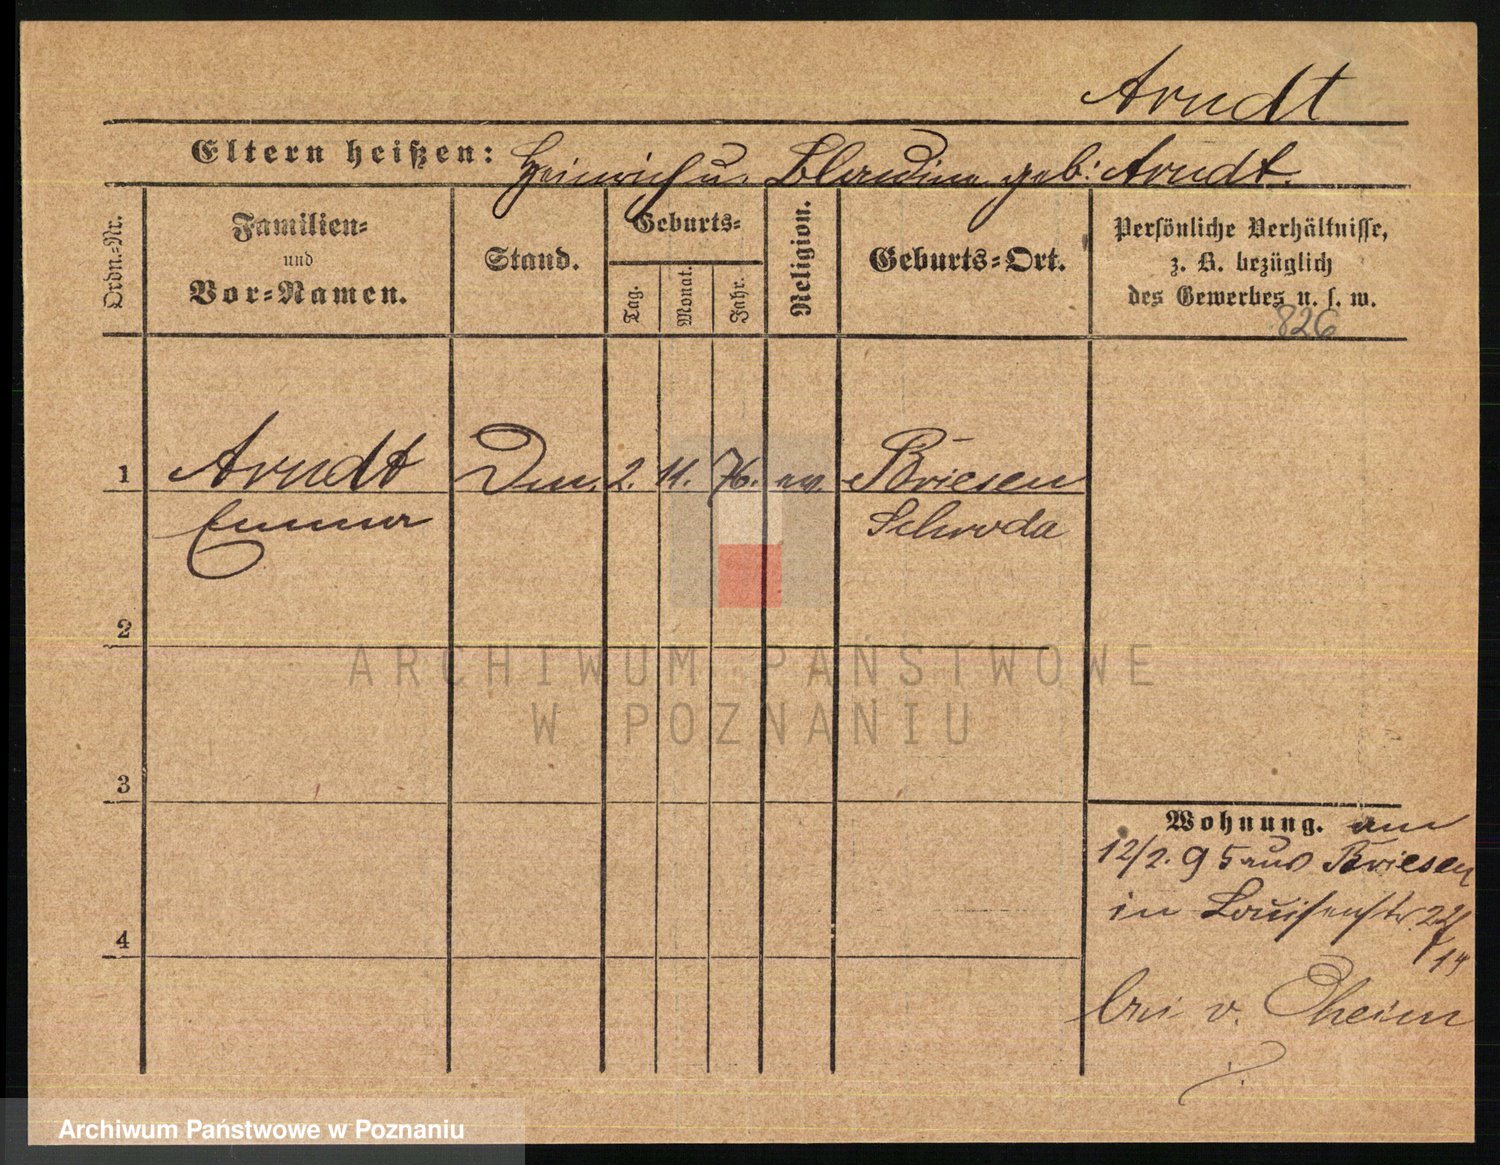 Arndt
Eltern heißen: Heinrich u. geb: Arndt.
Ordn.-Nr.
Familien-
und
Vor-Namen.
Stand.
Geburts-
Tag.
Monat.
Jahr.
Religion.
Geburts-Ort.
Persönliche Verhältnisse,
z. B. bezüglich
des Gewerbes u. s. w.
826
1 Arndt 2. 11. 76. ev. Briesen
Emma Schroda
2
3
4
Wohnung. am
12/2. 95 aus Briesen
in Louisenstr. 22/
14
bei v. Oheim
ARCHIWUM PAŃSTWOWE
W POZNANIU
Archiwum Państwowe w Poznaniu